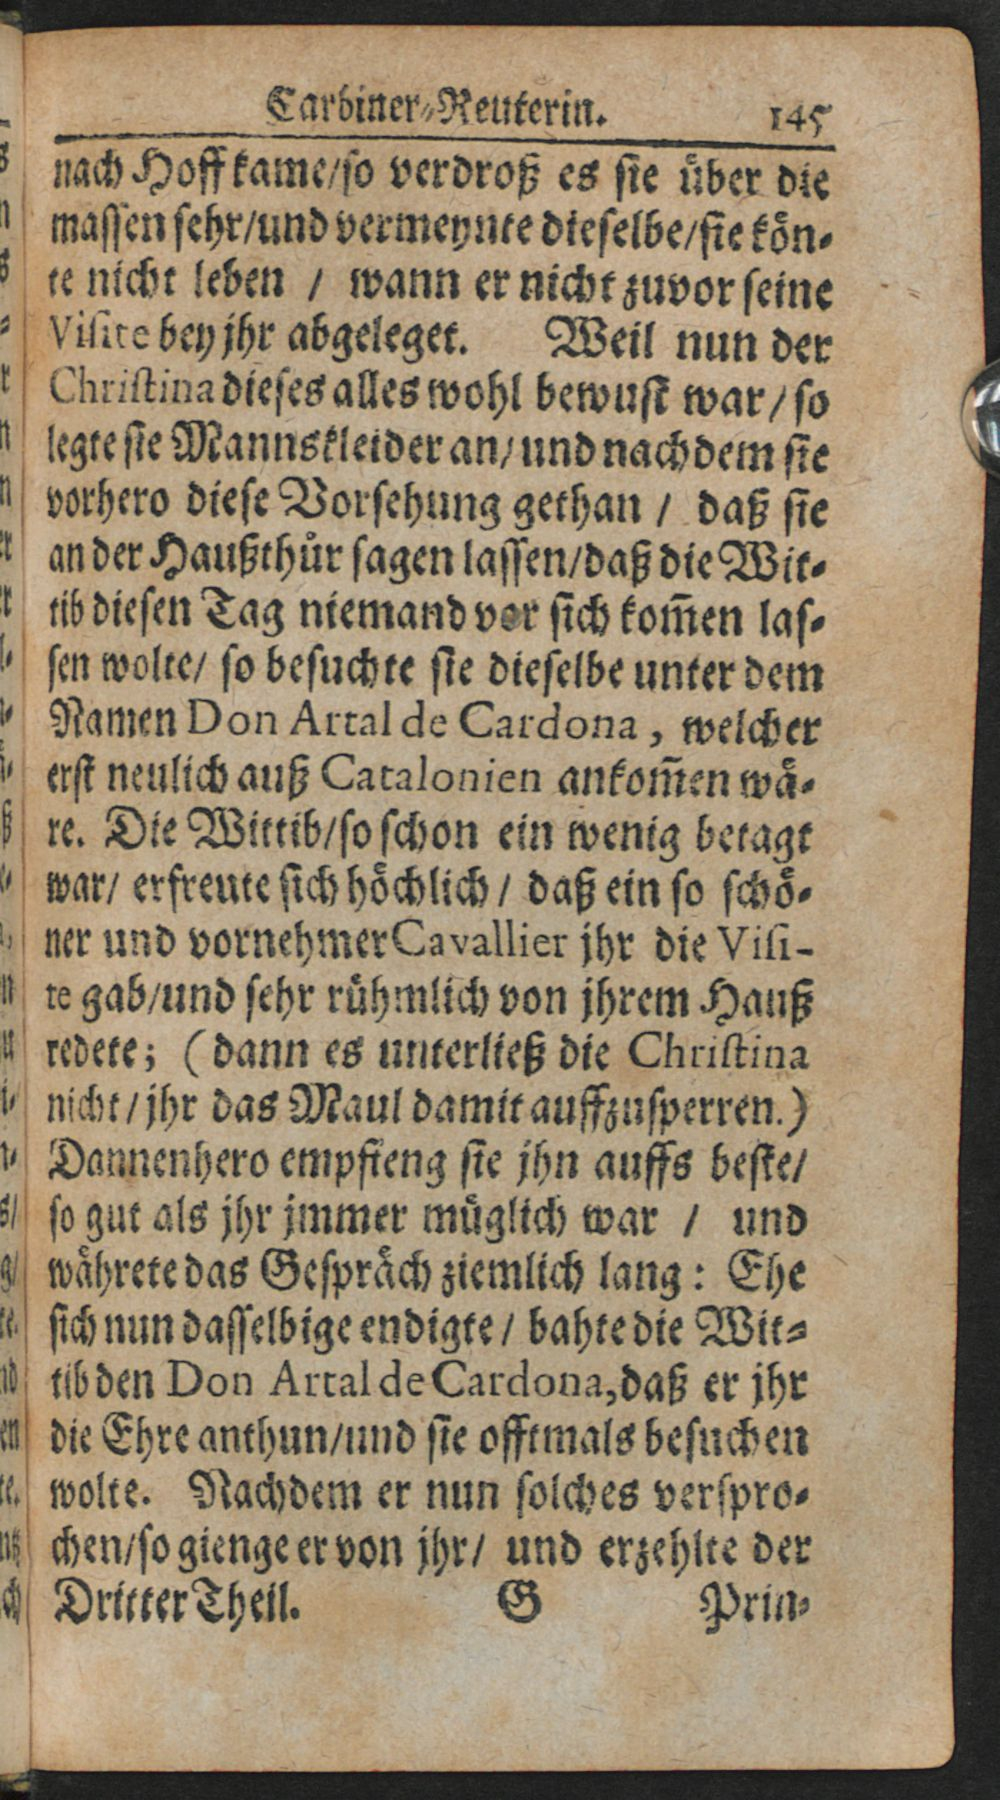 Carbiner-Reuterin. 145
nach Hoff kame/so verdroß es sie über die
massen sehr/und vermeynte dieselbe/sie kön-
te nicht leben / wann er nicht zuvor seine
Visite bey jhr abgeleget. Weil nun der
Christina dieses alles wohl bewust war/so
legte sie Mannskleider an/und nachdem sie
vorhero diese Vorsehung gethan / daß sie
an der Haußthür sagen lassen/daß die Wit-
tib diesen Tag niemand vor sich kom̃en las-
sen wolte/ so besuchte sie dieselbe unter dem
Namen Don Artal de Cardona, welcher
erst neulich auß Catalonien ankom̃en wä-
re. Die Wittib/so schon ein wenig betagt
war/ erfreute sich höchlich/ daß ein so schö-
ner und vornehmer Cavallier jhr die Visi-
te gab/und sehr rühmlich von jhrem Hauß
redete; (dann es unterließ die Christina
nicht/jhr das Maul damit auffzusperren.)
Dannenhero empfieng sie jhn auffs beste/
so gut als jhr jmmer müglich war / und
währete das Gespräch ziemlich lang: Ehe
sich nun dasselbige endigte/ bahte die Wit-
tib den Don Artal de Cardona, daß er jhr
die Ehre anthun/und sie offtmals besuchen
wolte. Nachdem er nun solches verspro-
chen/so gienge er von jhr/ und erzehlte der
Dritter Theil. G Prin-